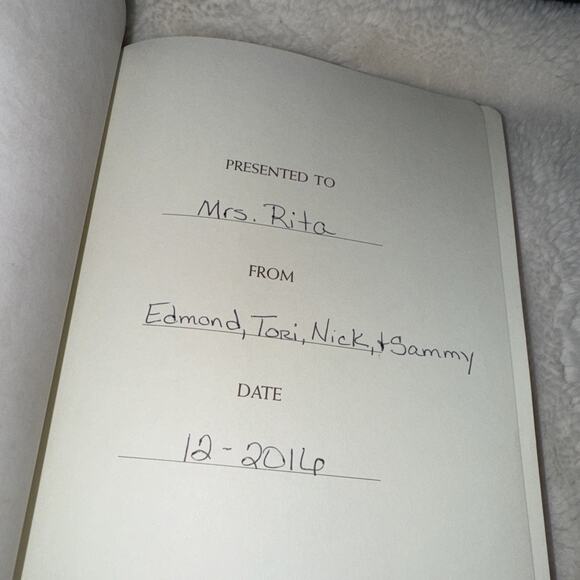 PRESENTED TO
Mrs. Rita
FROM
Edmond, Tori, Nick, + Sammy
DATE
12-2016